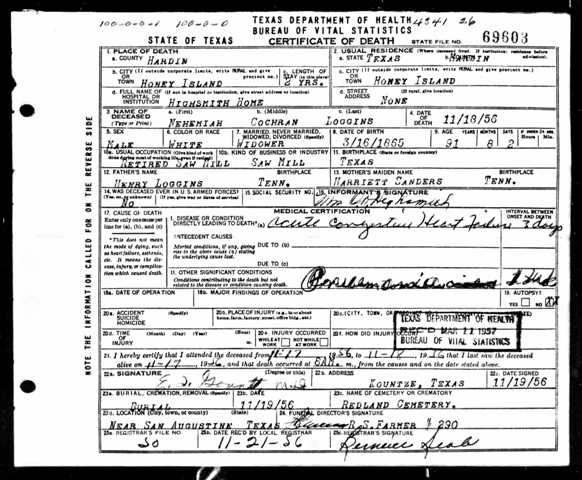 100-0-0-1 100-0-0 TEXAS DEPARTMENT OF HEALTH 4341 26
BUREAU OF VITAL STATISTICS
STATE OF TEXAS CERTIFICATE OF DEATH STATE FILE NO. 69603
1. PLACE OF DEATH 2. USUAL RESIDENCE (Where deceased lived. If institution: residence before admission).
a. COUNTY HARDIN a. STATE TEXAS b. COUNTY HARDIN
b. CITY (If outside corporate limits, write RURAL and give precinct no.) OR TOWN HONEY ISLAND c. LENGTH OF STAY (in this place) 2 YRS. c. CITY (If outside corporate limits, write RURAL and give precinct no.) OR TOWN HONEY ISLAND
d. FULL NAME OF (If not in hospital or institution, give street address or location) HOSPITAL OR INSTITUTION HIGHSMITH HOME d. STREET ADDRESS (If rural, give location) NONE
3. NAME OF DECEASED (Type or Print) a. (First) NEHEMIAH b. (Middle) COCHRAN c. (Last) LOGGINS 4. DATE OF DEATH 11/18/56
5. SEX MALE 6. COLOR OR RACE WHITE 7. MARRIED, NEVER MARRIED, WIDOWED, DIVORCED (Specify) WIDOWER 8. DATE OF BIRTH 3/16/1865 9. AGE YEARS 91 MONTHS 8 DAYS 2
10a. USUAL OCCUPATION (Give kind of work done during most of working life, even if retired) RETIRED SAW MILL 10b. KIND OF BUSINESS OR INDUSTRY SAW MILL 11. BIRTHPLACE (State or foreign country) TEXAS
12. FATHER'S NAME HENRY LOGGINS BIRTHPLACE TENN. 13. MOTHER'S MAIDEN NAME HARRIETT SANDERS BIRTHPLACE TENN.
14. WAS DECEASED EVER IN U.S. ARMED FORCES? (Yes, no, or unknown) (If yes, give war or dates of service) NO 15. SOCIAL SECURITY NO. 16. INFORMANT'S SIGNATURE
17. CAUSE OF DEATH MEDICAL CERTIFICATION INTERVAL BETWEEN ONSET AND DEATH
Enter only one cause per line for (a), (b), and (c) 1. DISEASE OR CONDITION DIRECTLY LEADING TO DEATH* (a) Acute Congestive Heart Failure 3 days
*This does not mean the mode of dying, such as heart failure, asthenia, etc. It means the disease, injury, or complication which caused death. ANTECEDENT CAUSES
Morbid conditions, if any, giving rise to the above cause (a) stating the underlying cause last. DUE TO (b)
DUE TO (c)
11. OTHER SIGNIFICANT CONDITIONS
Conditions contributing to the death but not related to the disease or condition causing death.
18a. DATE OF OPERATION 18b. MAJOR FINDINGS OF OPERATION 19. AUTOPSY? YES NO XX
20a. ACCIDENT SUICIDE HOMICIDE (Specify) 20b. PLACE OF INJURY (e.g., in or about home, farm, factory, street, office bldg., etc.) 20c. (CITY, TOWN, OR
20d. TIME OF INJURY 20e. INJURY OCCURRED WHILE AT WORK NOT WHILE AT WORK 20f. HOW DID INJURY OCCUR?
TEXAS DEPARTMENT OF HEALTH
REC'D MAR 11 1957
BUREAU OF VITAL STATISTICS
21. I hereby certify that I attended the deceased from 11-17 1956, to 11-18 1956 that I last saw the deceased
alive on 11-17 1956, and that death occurred at 6AM. m., from the causes and on the date stated above.
22a. SIGNATURE (Degree or title) M.D. 22b. ADDRESS KOUNTZE, TEXAS 22c. DATE SIGNED 11/19/56
23a. BURIAL, CREMATION, REMOVAL (Specify) BURIAL 23b. DATE 11/19/56 23c. NAME OF CEMETERY OR CREMATORY REDLAND CEMETERY.
23d. LOCATION (City, town, or county) (State) NEAR SAN AUGUSTINE TEXAS 24. FUNERAL DIRECTOR'S SIGNATURE R.S. FARMER # 290
25a. REGISTRAR'S FILE NO. 30 25b. DATE REC'D BY LOCAL REGISTRAR 11-21-56 25c. REGISTRAR'S SIGNATURE
NOTE THE INFORMATION CALLED FOR ON THE REVERSE SIDE